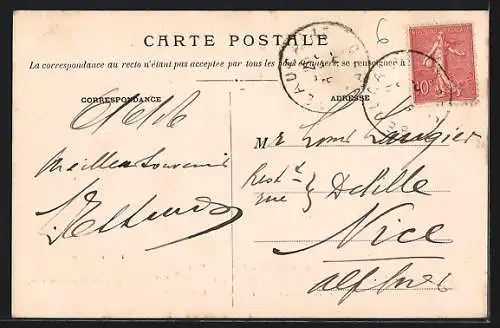 CARTE POSTALE
La correspondance au recto n'étant pas acceptée par tous les pays étrangers, se renseigner à
CORRESPONDANCE
ADRESSE
Meilleur Souvenir
Mr Louis Laugier
rue Delille
Nice
Alp. Mes
10c
6